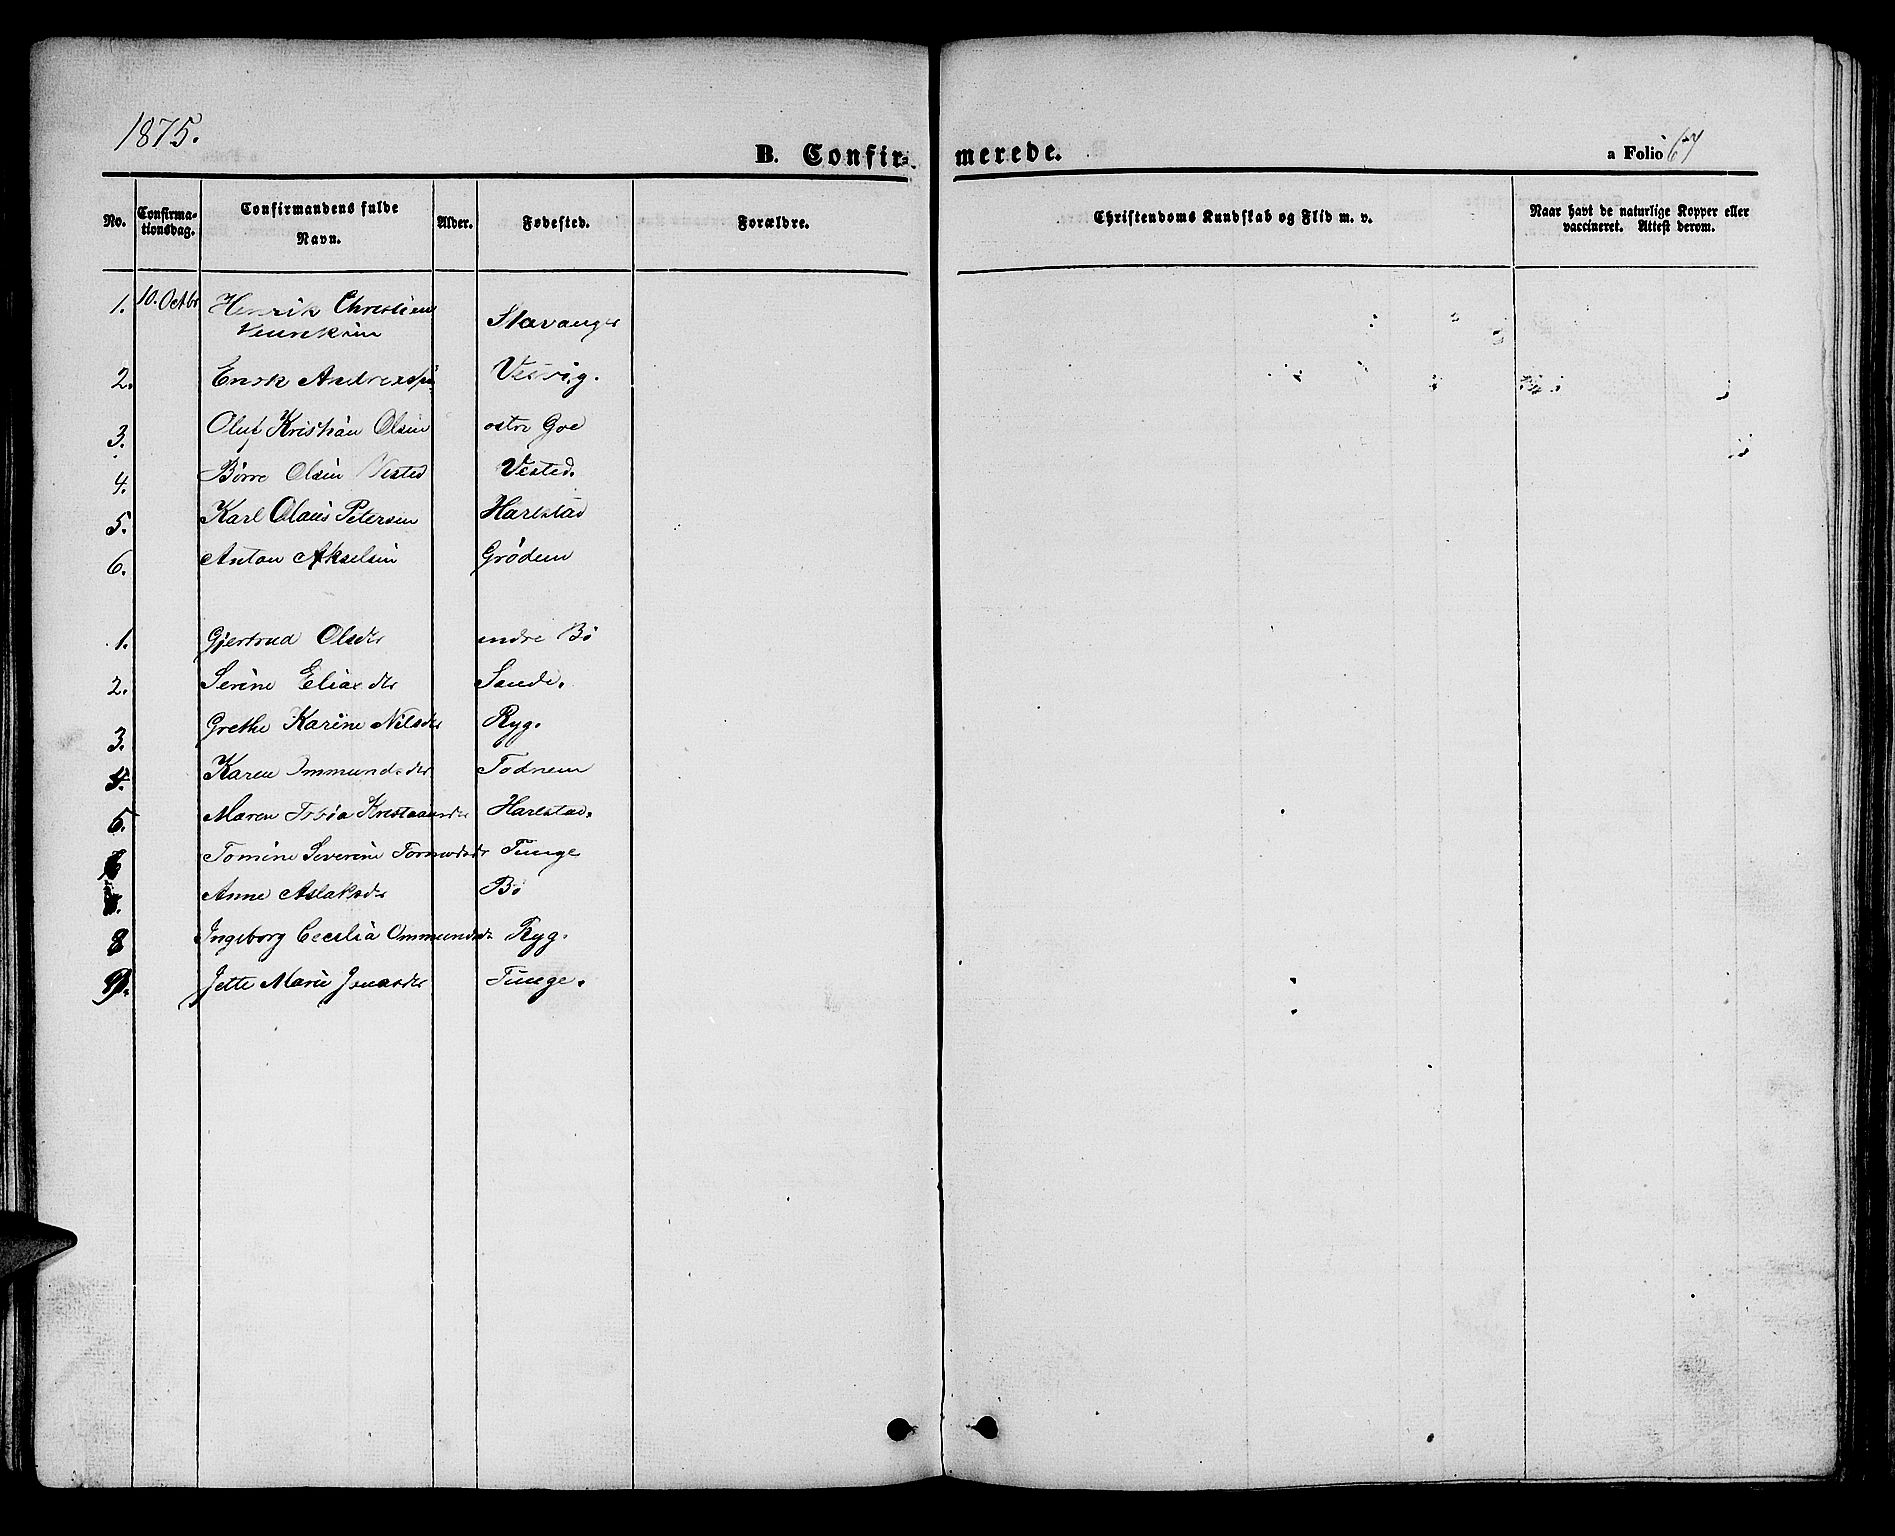 1875.
B. Confirmerede.
a Folio 67
No. Confirmationsdag. Confirmandens fulde Navn. Alder. Fødested. Forældre. Christendoms Kundskab og Flid m. v. Naar havt de naturlige Kopper eller vaccineret. Attest derom.
1. 10. Octbr Henrik Christian Stavanger
2. Andreas Vestvig.
3. Oluf Kristian Olsen ostre Goe
4. Børre Olsen Visted Visted.
5. Karl Olaus Petersen Harestad
6. Anton Akselsen Grødem
1. Gjertrud Olsdtr indre Bø
2. Serine Eliasdtr Sande.
3. Grethe Karine Nilsdtr Ryg.
4. Karen Ommundsdtr Todnem
5. Maren Harestad.
6 Tomine Severine Tunge
Anne Aslaksdtr Bø
8 Ingeborg Cecilia Ommundsd. Ryg.
9. Jette Marie Jonasdtr Tunge.